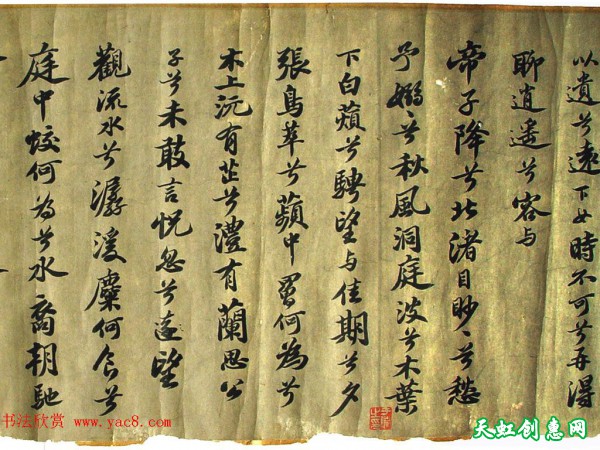 以遺兮遠下女時不可兮再得
聊逍遥兮容与
帝子降兮北渚目眇〻兮愁
予嫋〻兮秋風洞庭波兮木葉
下白薠兮騁望与佳期兮夕
張鳥萃兮蘋中罾何為兮
木上沅有芷兮澧有蘭思公
子兮未敢言怳忽兮遠望
觀流水兮潺湲麋何食兮
庭中蛟何為兮水裔朝馳
书法欣赏 www.yac8.com
天虹创惠网